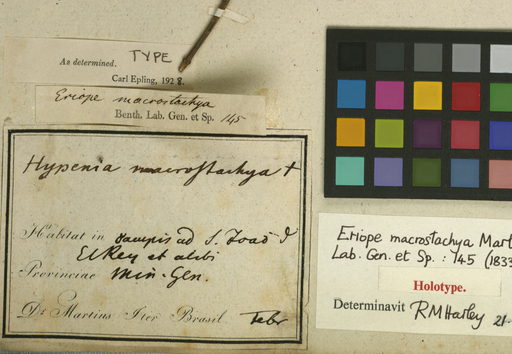 TYPE
As determined.
Carl Epling, 1928.
Eriope macrostachya
Benth. Lab. Gen. et Sp. 145
Hypenia macrostachya †
Habitat in campis ad S. Joaõ d
El Rey et alibi
Provinciae Min. Gen.
Dr Martius Iter Brasil
Eriope macrostachya Mart
Lab. Gen. et Sp. : 145 (1833
Holotype.
Determinavit RMHarley 21